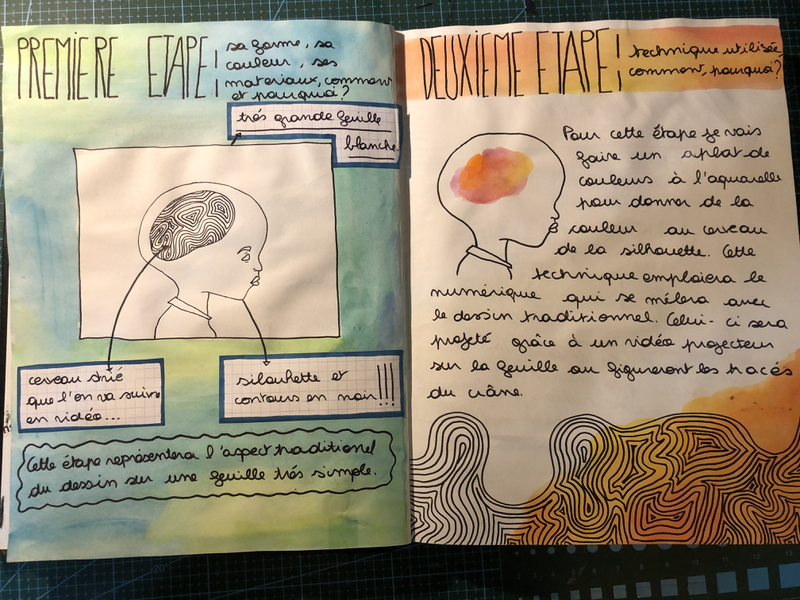 PREMIERE ETAPE :
sa forme, sa
couleur, ses
materiaux, comment
et pourquoi ?
trés grande feuille
blanche
cerveau strié
que l'on va suivre
en vidéo...
silouhette et
contours en noir !!!
Cette étape représentera l'aspect traditionel
du dessin sur une feuille trés simple.
DEUXIEME ETAPE :
technique utilisée
comment, pourquoi ?
Pour cette étape je vais
faire un aplat de
couleurs à l'aquarelle
pour donner de la
couleur au cerveau
de la silhouette. Cette
technique emploiera le
numérique qui se mélera avec
le dessin traditionnel. Celui-ci sera
projeté grâce à un vidéo projecteur
sur la feuille ou figureront les tracés
du crâne.